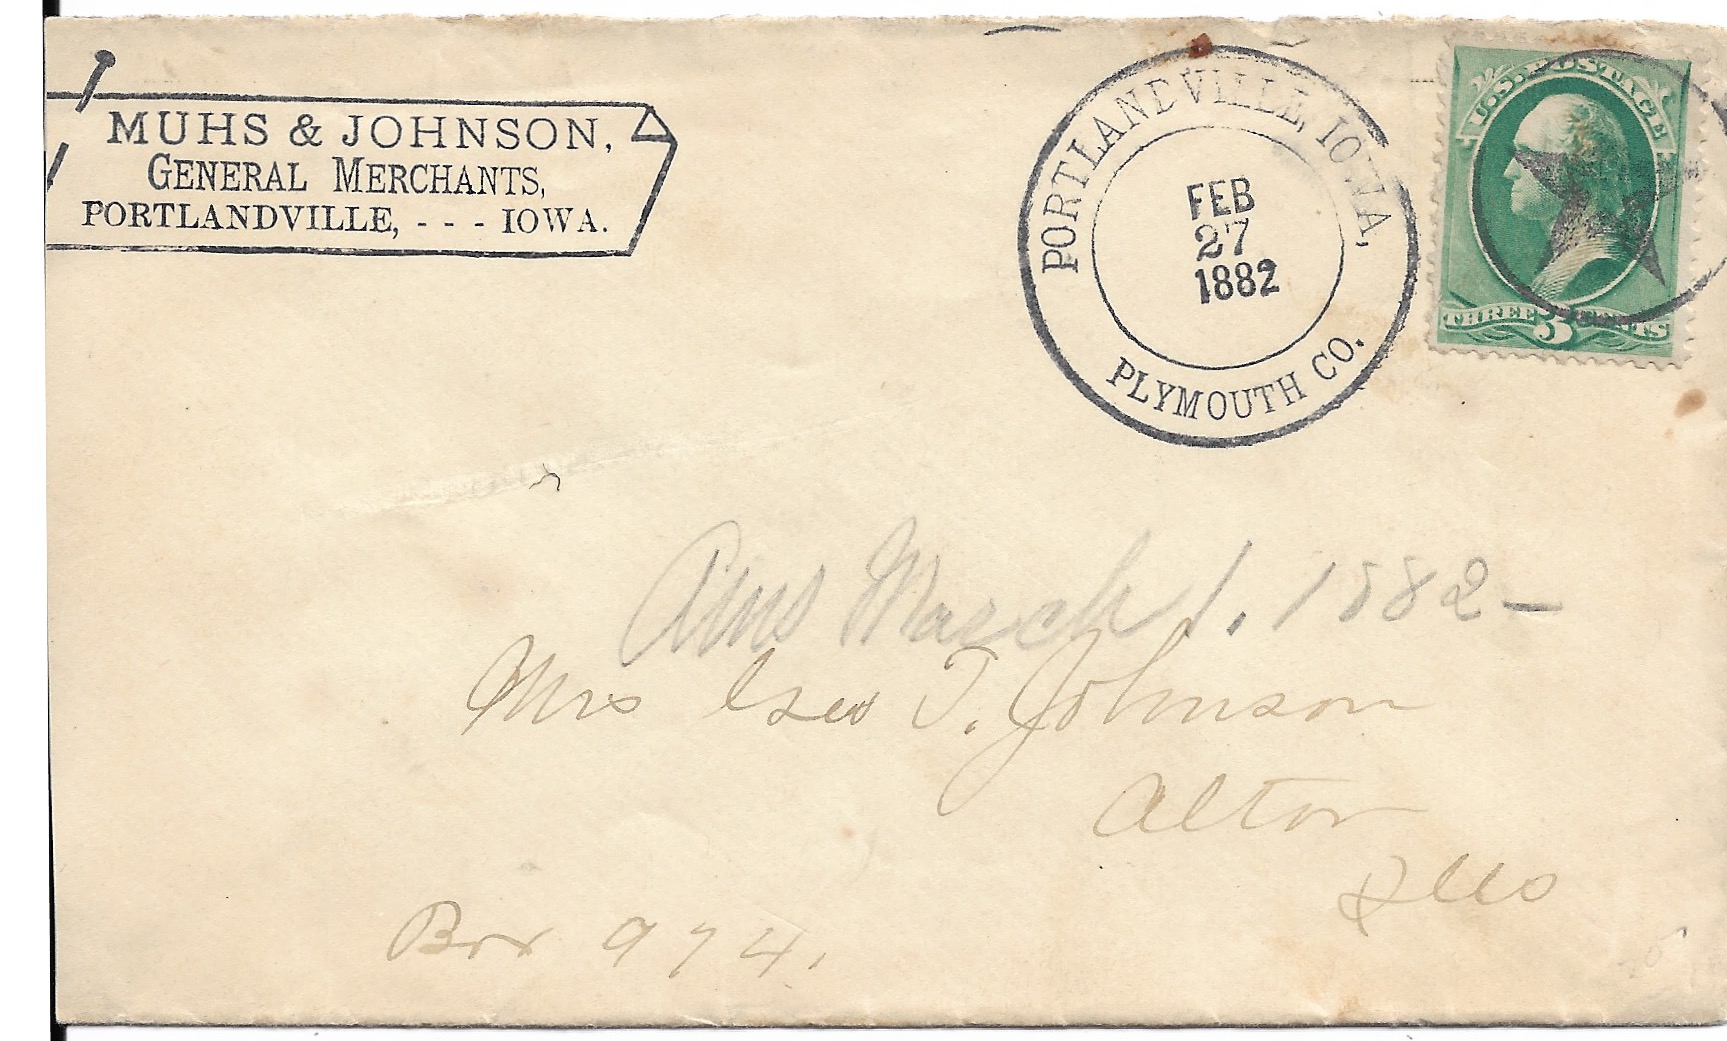 MUHS & JOHNSON,
GENERAL MERCHANTS,
PORTLANDVILLE, - - - IOWA.
PORTLANEVILLE, IOWA,
FEB
27
1882
PLYMOUTH CO.
U.S. POSTAGE
THREE 3 CENTS
Ans March 1. 1882 -
Mrs Geo T. Johnson
Alton
Ills
Box 974.